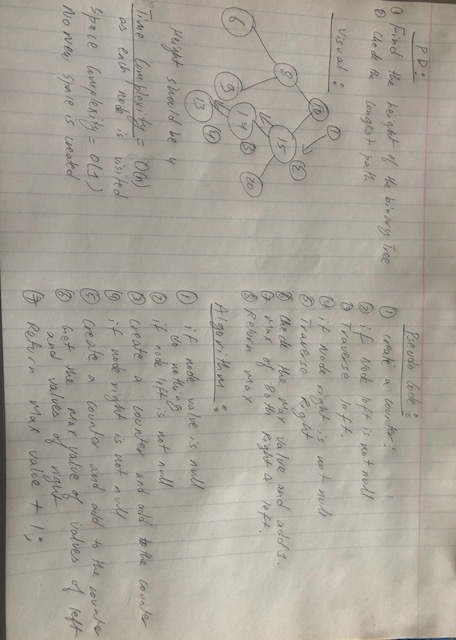 P.D:
① Find the height of the binary Tree
② Check the longest path
Visual:
①
10
②
8
15
6
9
③
14
20
④
13
Hight should be 4
Time complexity = O(n)
as each node is visited
Space complexity = O(1)
No new space is created
Pseudo Code:
① create a counter:
② if node left is not null
③ Traverse left.
④ if node right is not null
⑤ Traverse Right
⑥ Check the max value and add 1.
⑦ max of Both Right & left.
⑧ Return max
Algorithm:
① if node value is null
do nothing
② if node left is not null
③ create a counter and add to the counter
④ if node right is not null
⑤ Create a counter and add to the counter
⑥ Get the max value of values of left
and values of right
⑦ Return max value + 1;